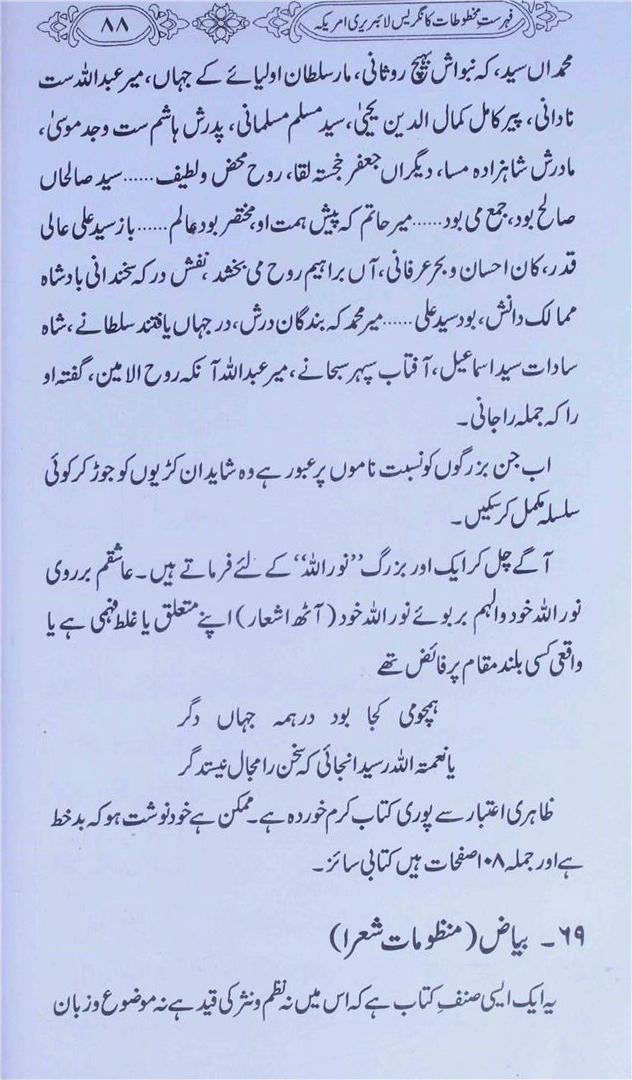 فہرست مخطوطات کانگریس لائبریری امریکہ
۸۸
محمد اں سید، کہ نبواش ہیچ روثانی، مار سلطان اولیائے کے جہاں، میر عبداللہ ست
نادانی، پیر کامل کمال الدین یحییٰ، سید مسلم مسلمانی، پدرش ہاشم ست وجد موسیٰ،
مادرش شاہزادہ مسا، دیگراں جعفر خجستہ لقا، روح محض ولطیف......سید صالحاں
صالح بود، جمع می بود......میر حاتم کہ پیش ہمت او، مختصر بود عالم......باز سید علی عالی
قدر، کان احسان و بحر عرفانی، آں براہیم روح می بخشد، نفش در کہ سخندانی بادشاہ
ممالک دانش، بود سید علی......میر محمد کہ بندگان درش، در جہاں یافتند سلطانے، شاہ
سادات سید اسماعیل، آفتاب سپہر سبحانے، میر عبداللہ آنکہ روح الامین، گفتہ او
را کہ جملہ را جانی۔
اب جن بزرگوں کو نسبت ناموں پر عبور ہے وہ شاید ان کڑیوں کو جوڑ کر کوئی
سلسلہ مکمل کر سکیں۔
آگے چل کر ایک اور بزرگ ’’نور اللہ‘‘ کے لئے فرماتے ہیں۔ عاشقم بر روی
نور اللہ خود والہم بر بوئے نور اللہ خود (آٹھ اشعار) اپنے متعلق یا غلط فہمی ہے یا
واقعی کسی بلند مقام پر فائض تھے
ہمچومی کجا بود در ہمہ جہاں دگر
یا نعمتہ اللہ رسید انجائی کہ سخن را مجال نیست دگر
ظاہری اعتبار سے پوری کتاب کرم خوردہ ہے۔ ممکن ہے خود نوشت ہو کہ بدخط
ہے اور جملہ ۱۰۸ صفحات ہیں کتابی سائز۔
۶۹۔ بیاض (منظومات شعرا)
یہ ایک ایسی صنفِ کتاب ہے کہ اس میں نہ نظم و نثر کی قید ہے نہ موضوع و زبان